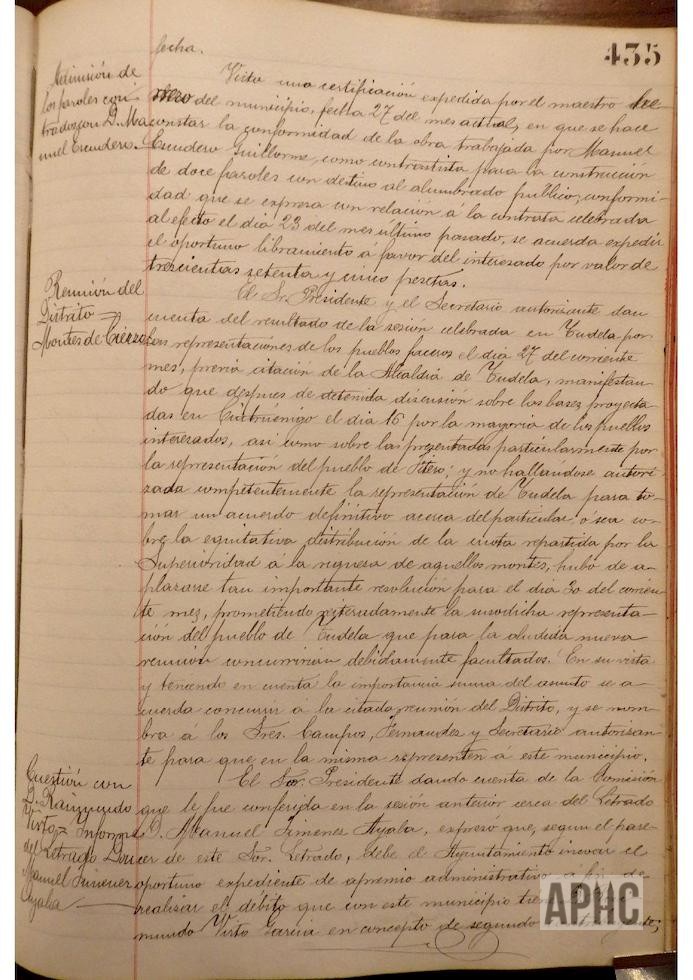 435
fecha.
Admisión de
los faroles con
tratados con D. Ma
nuel Escudero.
Vista una certificación expedida por el maestro
del municipio, fecha 27 del mes actual, en que se hace
constar la conformidad de la obra trabajada por Manuel
Escudero Guillorme, como contratista para la construcción
de doce faroles con destino al alumbrado publico, conformi-
dad que se expresa con relación á la contrata celebrada
al efecto el dia 23 del mes último pasado, se acuerda expedir
el oportuno libramiento á favor del interesado por valor de
trescientas setenta y cinco pesetas.
Reunión del
Distrito
Montes de Cierzo
El Sr. Presidente y el Secretario autorisante dan
cuenta del resultado de la sesión celebrada en Tudela por
las representaciones de los pueblos faceros el dia 27 del corriente
mes, previa citación de la Alcaldia de Tudela, manifestan-
do que despues de detenida discusión sobre las bases proyecta-
das en Cintruénigo el dia 16 por la mayoria de los pueblos
interesados, asi como sobre las presentadas particularmente por
la representación del pueblo de Fitero; y no hallandose autori-
zada competentemente la representación de Tudela para to-
mar un acuerdo definitivo acerca del particular, ó sea so-
bre la equitativa distribución de la cuota repartida por la
Superioridad á la riqueza de aquellos montes, hubo de a-
plazarse tan importante resolución para el dia 30 del corrien-
te mes, prometiendo reiteradamente la susodicha representa-
ción del pueblo de Tudela que para la aludida nueva
reunión concurririan debidamente facultados. En su vista
y teniendo en cuenta la importancia suma del asunto se a-
cuerda concurrir á la citada reunión del Distrito, y se nom-
bra a los Sres. Campos, Fernandez y Secretario autorisan-
te para que en la misma representen á este municipio.
Cuestión con
D. Raimundo
Virto= Informe
del Letrado Don
Manuel Jimenez
Ayala
El Sor. Presidente dando cuenta de la Comisión
que le fue conferida en la sesión anterior cerca del Letrado
D. Manuel Jimenez Ayala, expresó que, segun el pare-
cer de este Sor. Letrado, debe el Ayuntamiento incoar el
oportuno expediente de apremio administrativo á fin de
realizar el débito que con este municipio tiene
mundo Virto Garcia en concepto de segundo
APHC